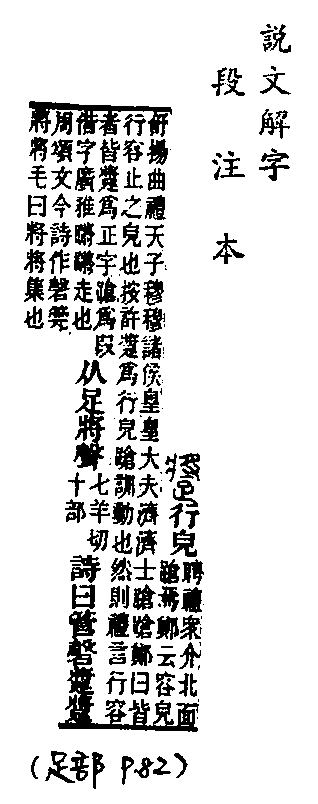 說文解字
段注本
蹡行皃
聘禮眾介北面
蹌焉鄭云容皃
舒揚曲禮天子穆穆諸侯皇皇大夫濟濟士蹌蹌鄭曰皆
行容止之皃也按許蹡爲行皃蹌訓動也然則禮言行容
者皆蹡爲正字蹌爲叚
借字廣雅蹡蹡走也
从足將聲
七羊切
十部
詩曰管磬蹡蹡
周頌文今詩作磬筦
將將毛曰將將集也
(足部 P.82)